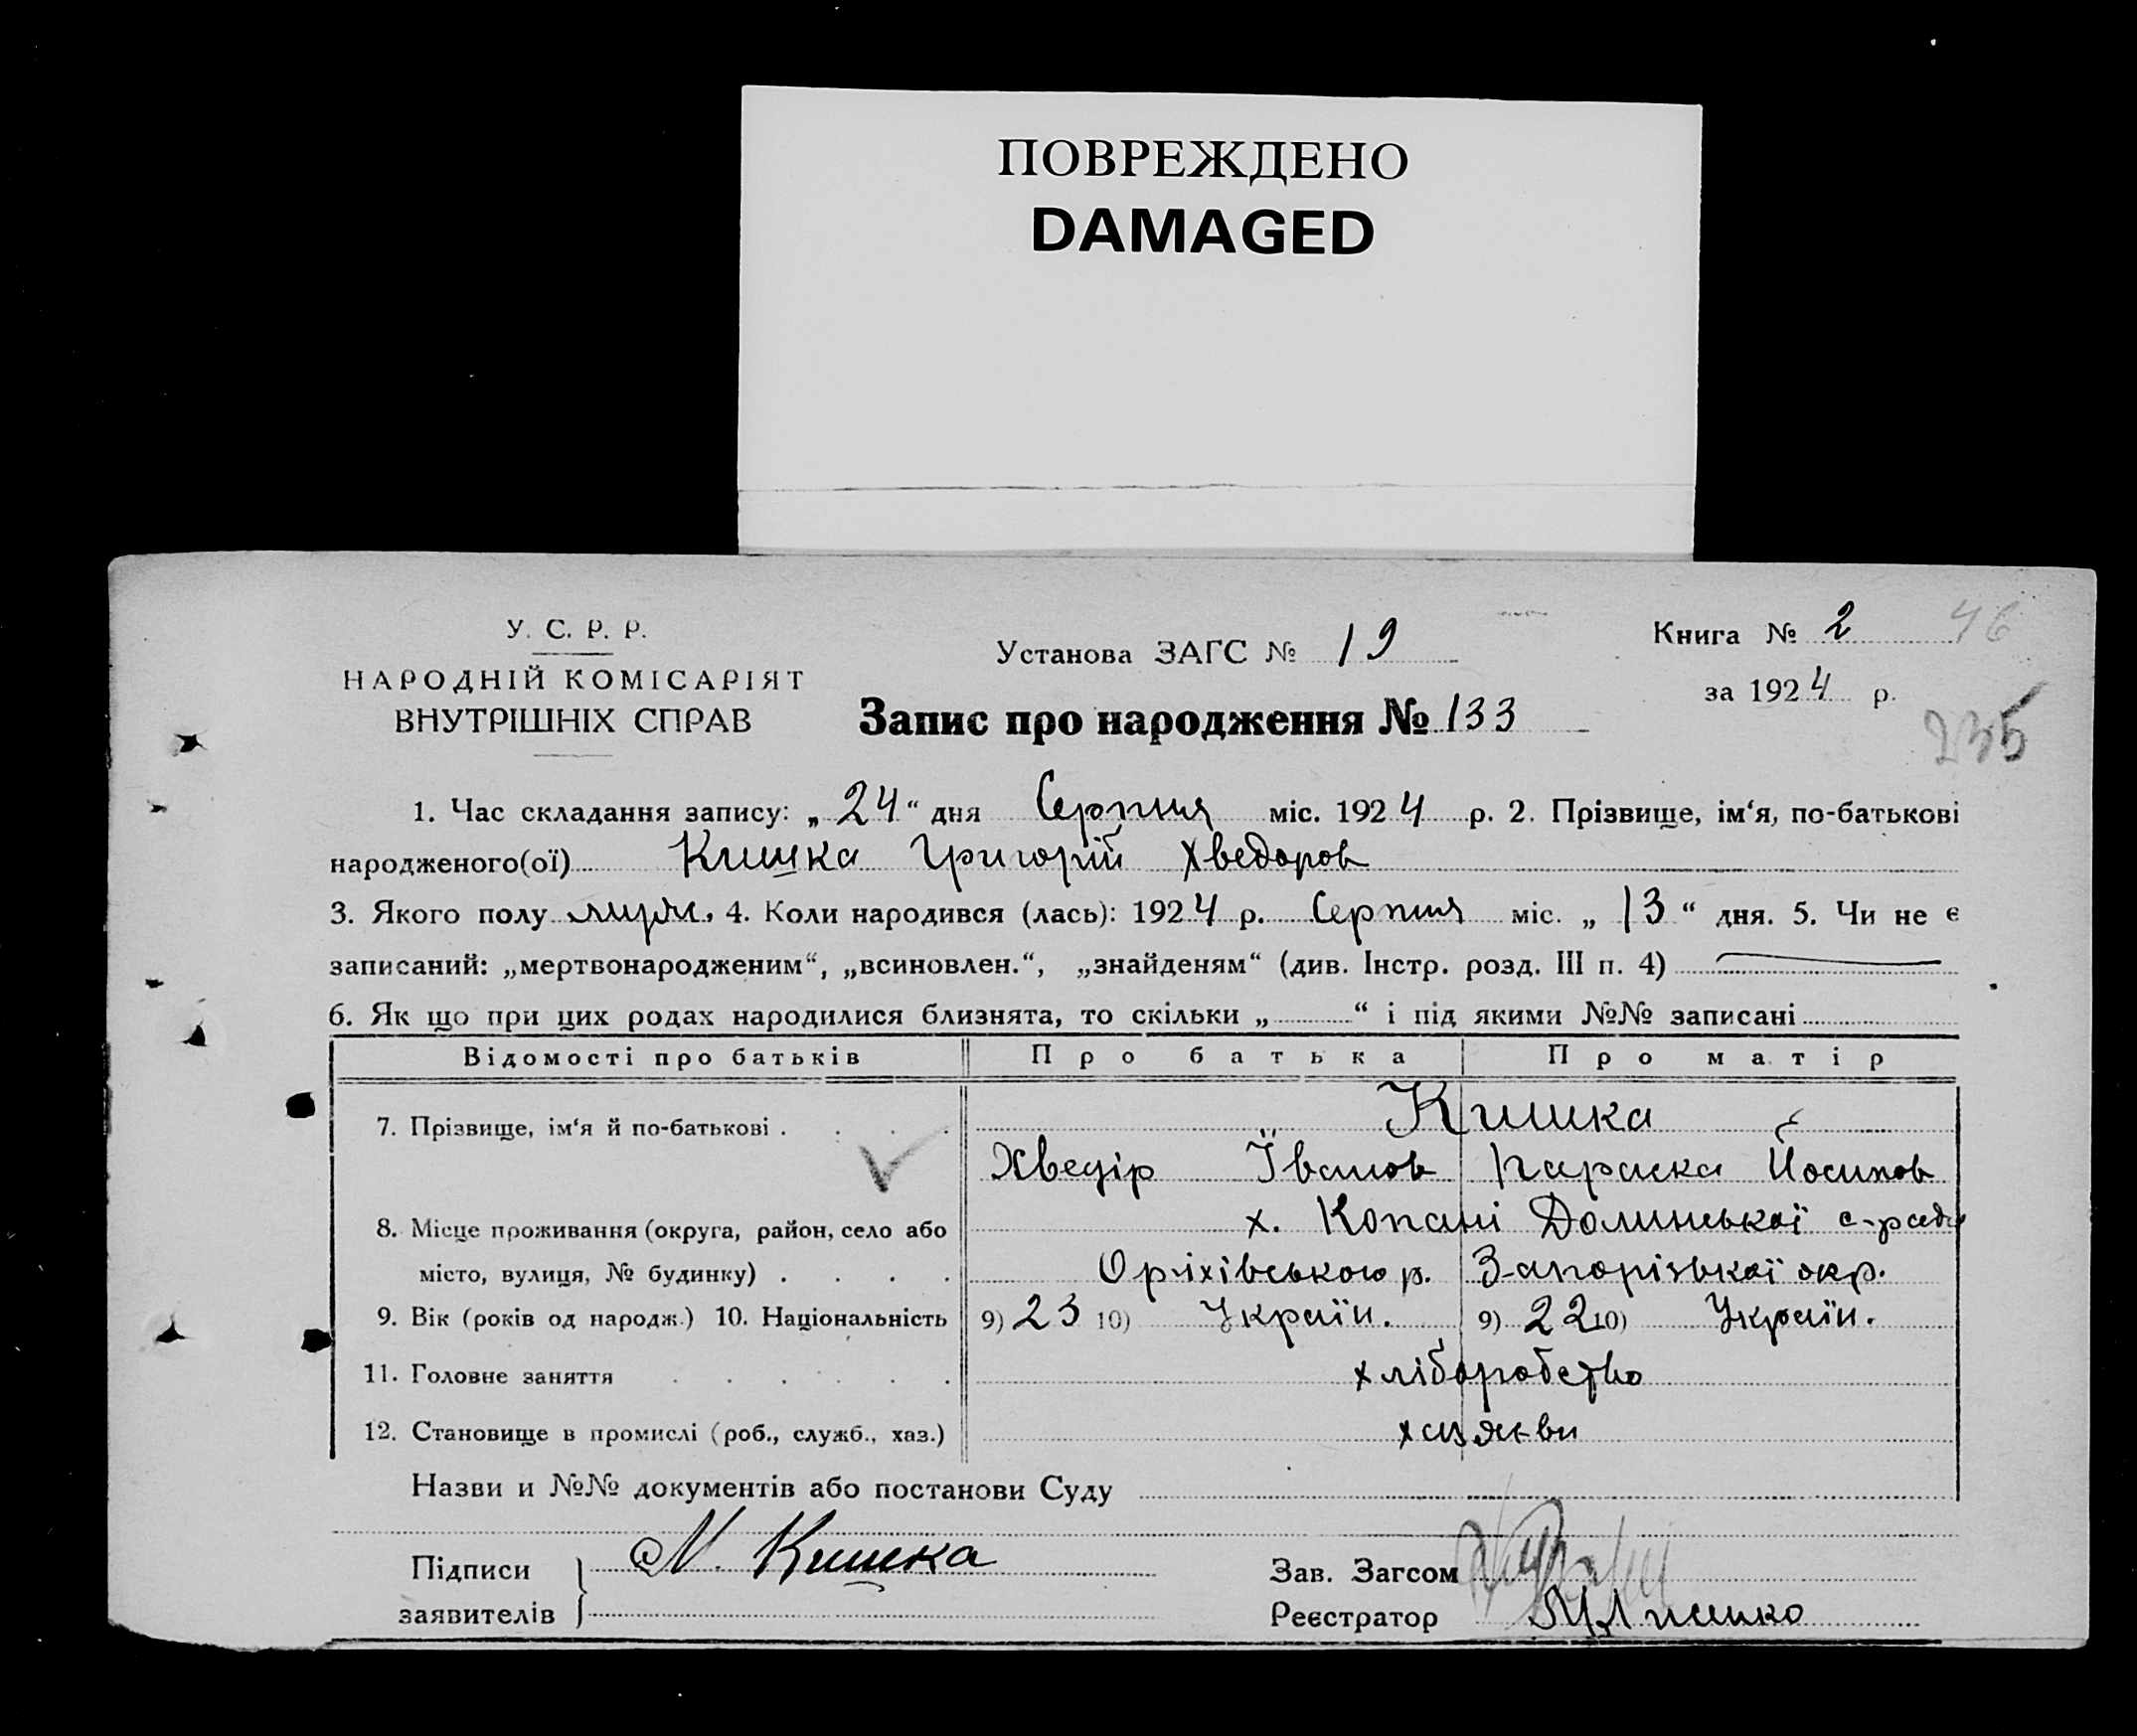 ПОВРЕЖДЕНО
DAMAGED
У. С. Р. Р.
НАРОДНІЙ КОМІСАРІЯТ
ВНУТРІШНІХ СПРАВ
Установа ЗАГС № 19
Книга № 2 46
за 1924 р.
Запис про народження № 133
235
1. Час складання запису: „24“ дня Серпня міс. 1924 р. 2. Прізвище, ім‘я, по-батькові
народженого(ої) Кишка Григорій Хведоров
3. Якого полу муж. 4. Коли народився (лась): 1924 р. Серпня міс. „13“ дня. 5. Чи не є
записаний: „мертвонародженим“, „всиновлен.“, „знайденям“ (див. Інстр. розд. III п. 4)
6. Як що при цих родах народилися близнята, то скільки „ “ і під якими №№ записані
Відомості про батьків Про батька Про матір
7. Прізвище, ім‘я й по-батькові . . . . Кишка
Хведір Іванов Параска Йосипов
8. Місце проживання (округа, район, село або х. Копані Долинської с-ради
місто, вулиця, № будинку) . . . . Оріхівського р. Запорізької окр.
9. Вік (років од народж.) 10. Національність 9) 23 10) Україн. 9) 22 10) Україн.
11. Головне заняття . . . . . . хліборобство
12. Становище в промислі (роб., служб., хаз.)
Назви и №№ документів або постанови Суду
Підписи М. Кишка Зав. Загсом
заявителів Реєстратор